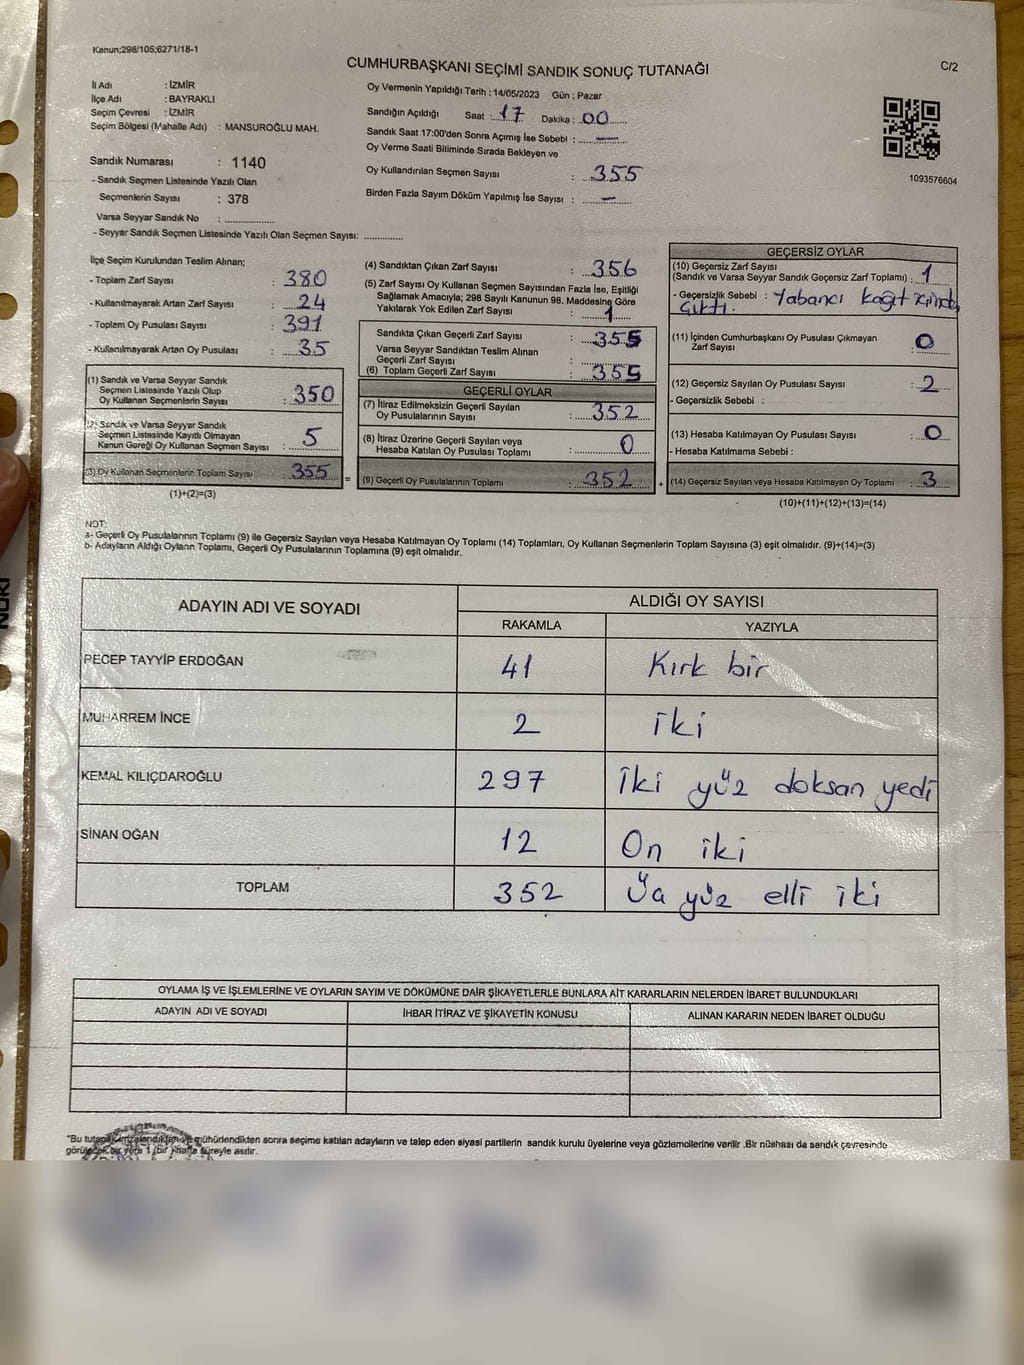 Kanun;298/105;6271/18-1
CUMHURBAŞKANI SEÇİMİ SANDIK SONUÇ TUTANAĞI
C/2
İl Adı : İZMİR
İlçe Adı : BAYRAKLI
Seçim Çevresi : İZMİR
Seçim Bölgesi (Mahalle Adı) : MANSUROĞLU MAH.
Sandık Numarası : 1140
- Sandık Seçmen Listesinde Yazılı Olan
Seçmenlerin Sayısı : 378
Varsa Seyyar Sandık No : ..............
- Seyyar Sandık Seçmen Listesinde Yazılı Olan Seçmen Sayısı: ............
Oy Vermenin Yapıldığı Tarih : 14/05/2023 Gün : Pazar
Sandığın Açıldığı Saat : 17 Dakika : 00
Sandık Saat 17:00'den Sonra Açımış İse Sebebi : —
Oy Verme Saati Bitiminde Sırada Bekleyen ve
Oy Kullandırılan Seçmen Sayısı : 355
Birden Fazla Sayım Döküm Yapılmış İse Sayısı : —
1093576604
İlçe Seçim Kurulundan Teslim Alınan;
- Toplam Zarf Sayısı : 380
- Kullanılmayarak Artan Zarf Sayısı : 24
- Toplam Oy Pusulası Sayısı : 391
- Kullanılmayarak Artan Oy Pusulası : 35
(1) Sandık ve Varsa Seyyar Sandık
Seçmen Listesinde Yazılı Olup
Oy Kullanan Seçmenlerin Sayısı : 350
(2) Sandık ve Varsa Seyyar Sandık
Seçmen Listesinde Kayıtlı Olmayan
Kanun Gereği Oy Kullanan Seçmen Sayısı : 5
(3) Oy Kullanan Seçmenlerin Toplam Sayısı : 355
(1)+(2)=(3)
(4) Sandıktan Çıkan Zarf Sayısı : 356
(5) Zarf Sayısı Oy Kullanan Seçmen Sayısından Fazla İse, Eşitliği
Sağlamak Amacıyla; 298 Sayılı Kanunun 98. Maddesine Göre
Yakılarak Yok Edilen Zarf Sayısı : 1
Sandıkta Çıkan Geçerli Zarf Sayısı : 355
Varsa Seyyar Sandıktan Teslim Alınan
Geçerli Zarf Sayısı : ............
(6) Toplam Geçerli Zarf Sayısı : 355
GEÇERLİ OYLAR
(7) İtiraz Edilmeksizin Geçerli Sayılan
Oy Pusulalarının Sayısı : 352
(8) İtiraz Üzerine Geçerli Sayılan veya
Hesaba Katılan Oy Pusulası Toplamı : 0
(9) Geçerli Oy Pusulalarının Toplamı : 352
GEÇERSİZ OYLAR
(10) Geçersiz Zarf Sayısı
(Sandık ve Varsa Seyyar Sandık Geçersiz Zarf Toplamı) : 1
- Geçersizlik Sebebi : Yabancı kağıt içinden
çıktı.
(11) İçinden Cumhurbaşkanı Oy Pusulası Çıkmayan
Zarf Sayısı : 0
(12) Geçersiz Sayılan Oy Pusulası Sayısı : 2
- Geçersizlik Sebebi :
(13) Hesaba Katılmayan Oy Pusulası Sayısı : 0
- Hesaba Katılmama Sebebi :
(14) Geçersiz Sayılan veya Hesaba Katılmayan Oy Toplamı : 3
(10)+(11)+(12)+(13)=(14)
NOT:
a- Geçerli Oy Pusulalarının Toplamı (9) ile Geçersiz Sayılan veya Hesaba Katılmayan Oy Toplamı (14) Toplamları, Oy Kullanan Seçmenlerin Toplam Sayısına (3) eşit olmalıdır. (9)+(14)=(3)
b- Adayların Aldığı Oyların Toplamı, Geçerli Oy Pusulalarının Toplamına (9) eşit olmalıdır.
ADAYIN ADI VE SOYADI
ALDIĞI OY SAYISI
RAKAMLA YAZIYLA
RECEP TAYYİP ERDOĞAN 41 Kırk bir
MUHARREM İNCE 2 iki
KEMAL KILIÇDAROĞLU 297 İki yüz doksan yedi
SİNAN OĞAN 12 On iki
TOPLAM 352 Üç yüz elli iki
OYLAMA İŞ VE İŞLEMLERİNE VE OYLARIN SAYIM VE DÖKÜMÜNE DAİR ŞİKAYETLERLE BUNLARA AİT KARARLARIN NELERDEN İBARET BULUNDUKLARI
ADAYIN ADI VE SOYADI İHBAR İTİRAZ VE ŞİKAYETİN KONUSU ALINAN KARARIN NEDEN İBARET OLDUĞU
"Bu tutanak imzalandıktan ve mühürlendikten sonra seçime katılan adayların ve talep eden siyasi partilerin sandık kurulu üyelerine veya gözlemcilerine verilir .Bir nüshası da sandık çevresinde
görülecek bir yere 1 (bir ) hafta süreyle asılır.